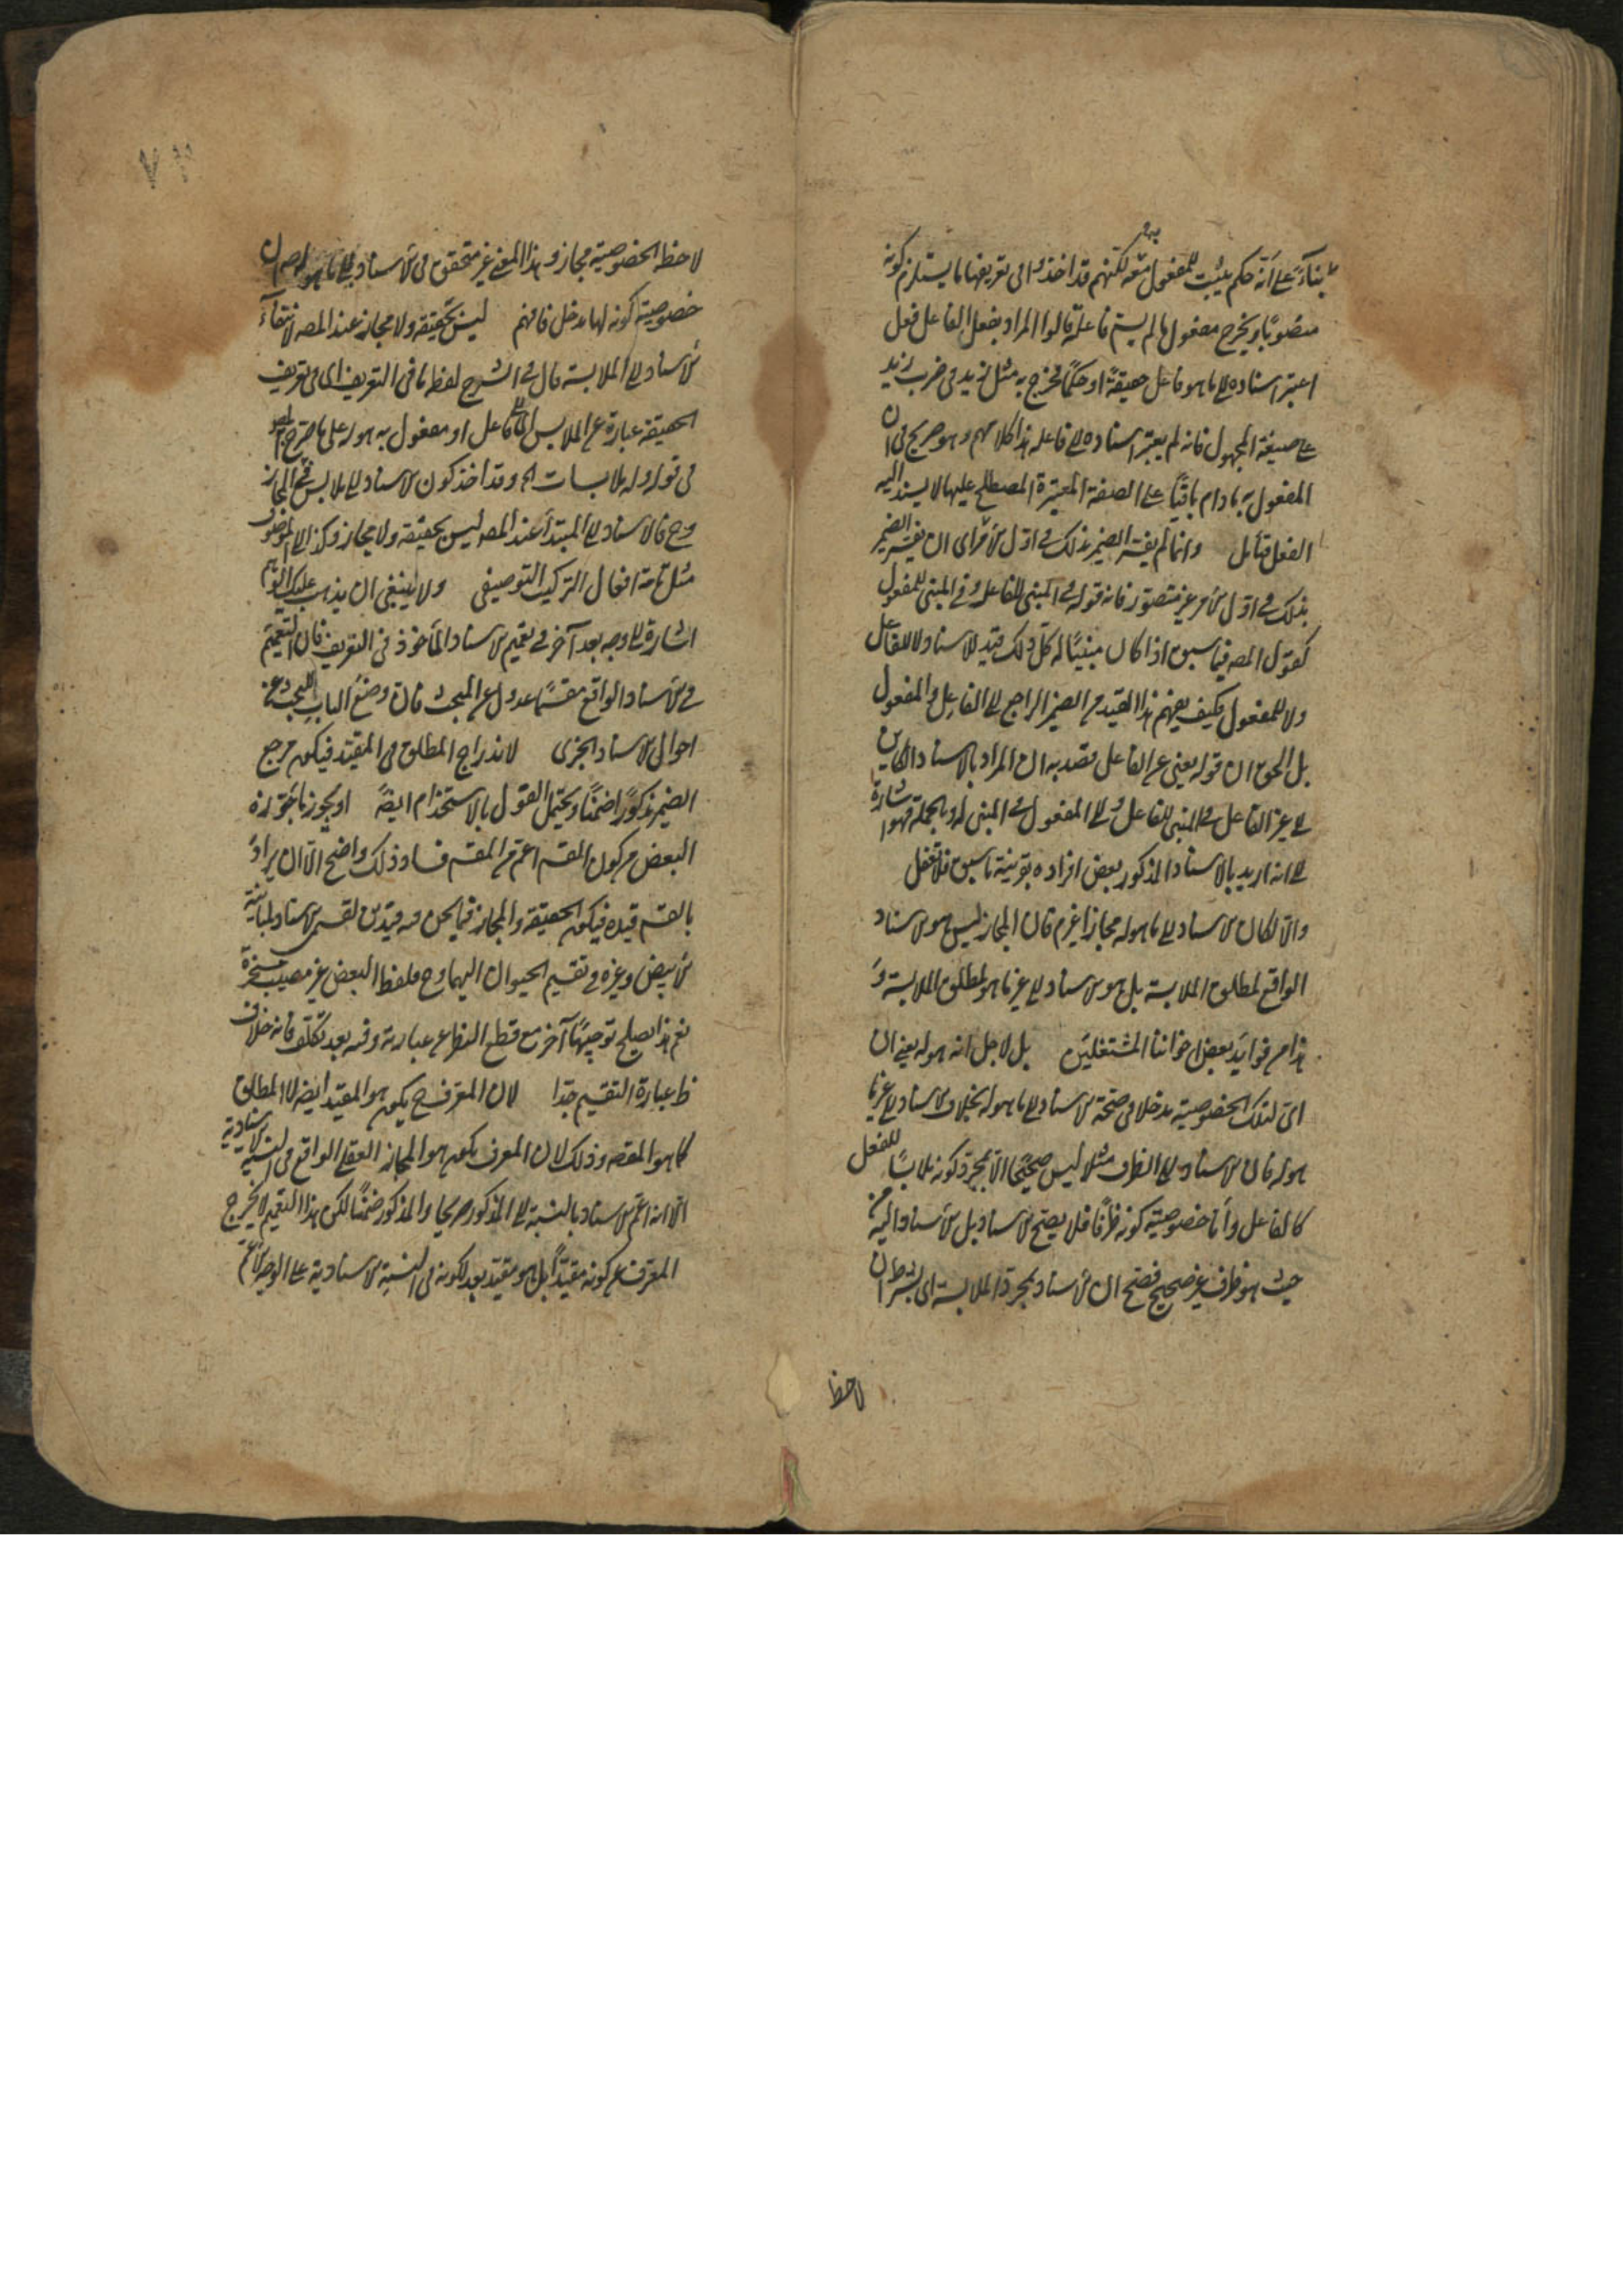 بناءً على أنه حكم يثبت للمفعول به لكنهم قد اخذوا فى تعريفها ما يستلزم كونه
منصوبًا ويخرج مفعول ما لم يسم فاعله قالوا المراد بفعل الفاعل فعل
اعتبر اسناده الى ما هو فاعل حقيقةً او حكمًا فخرج به مثل زيد فى ضرب زيد
على صيغة المجهول فانه لم يعتبر اسناده الى فاعله هذا كلامهم وهو صريح فى ان
المفعول به ما دام باقيًا على الصفة المعتبرة المصطلح عليها لا يسند اليه
الفعل فتأمل وانما لم يفسر الضمير بذلك فى اول الأمر اى ان يفسر الضمير
بذلك فى اول الأمر غير متصور فانه قوله فى المبنى للفاعل وفى المبنى للمفعول
كقول المصه فيما سبق اذا كان مبنيًا له كل ذلك قيد للاسناد لا للفاعل
ولا للمفعول فكيف يفهم هذا القيد من الضمير الراجع الى الفاعل والمفعول
بل الحق ان قوله يعنى غير الفاعل قصد به ان المراد بالاسناد الكاين
الى غير الفاعل فى المبنى للفاعل والى المفعول فى المبنى له وبالجملة فهو اشارة
الى انه اريد بالاسناد المذكور بعض افراده بقرينة ما سبق فلا تغفل
والا لكان الاسناد الى ما هو له مجازا غرم فان المجاز ليس هو الاسناد
الواقع لمطلق الملابسة بل هو الاسناد الى غير ما هو لمطلق الملابسة و
هذا من فوايد بعض اخواننا المشتغلين بل لاجل انه هو له يعنى ان
لتلك الخصوصية مدخلا فى صحة الاسناد الى ما هو له بخلاف الاسناد الى غير ما
هو له فان الاسناد الى الظرف مثلا ليس صحيحًا الا بمجرد كونه ملابسًا للفعل
كالفاعل وأما خصوصية كونه ظرفًا فلا يصحح الاسناد بل الاسناد اليه من
حيث هو ظرف غير صحيح فصح ان الاسناد بمجرد الملابسة اى بشرط ان
لاحظ
لاحظ الخصوصية مجاز وهذا المعنى غير متحقق فى الاسناد الى ما هو له
خصوصية كونه لها مدخل فافهم ليس بحقيقة ولا مجاز عند المصه لانتفاء
الاسناد الى الملابسة قال فى الشرح لفظ ما فى التعريف اى فى تعريف
الحقيقة عبارة عن الملابس اى فاعل او مفعول به هو له على ما صرح
فى قوله وله ملابسات اه وقد اخذ كون الاسناد الى ملابس فى المجاز
وح فالاسناد الى المبتدأ عند المصه ليس بحقيقة ولا مجاز وكذا الى الموصوف
مثل قامة افعال التركيب التوصيفى ولا ينبغى ان يذهب عليك
اشارة الى وجه بعد آخر فى تعميم الاسناد المأخوذ فى التعريف فان التعميم
فى الاسناد الواقع مقسمًا عدول عن المبحث فان وضع الباب للبحث عن
احوال الاسناد الخبرى لاندراج المطلق فى المقيد فيكون مرجع
الضمير مذكورًا ضمنًا ويحتمل القول بالاستخدام ايضًا او يجوز ما جوزه
البعض من كون القسم اعم من المقسم فساد ذلك واضح الا ان يراد
بالقسم قيده فيكون الحقيقة والمجاز فيما نحن فيه قيدين لقسمى الاسناد
الأبيض وغيره فى تقسيم الحيوان اليهما وح فلفظ البعض غير مصيب
نعم هذا يصلح توجيهًا آخر مع قطع النظر عن عبارته وفيه بعد تكلف فانه خلاف
ظ عبارة التقسيم جدا لان المعرف ح يكون هو المقيد ايضه لا المطلق
كما هو المقصه وذلك لان المعرف يكون هو المجاز العقلى الواقع فى النسبة الاسنادية
الا انه اعم الاسناد بالنسبة الى المذكور صريحا والمذكور ضمنًا لكن هذا التعميم لا يخرج
المعرف عن كونه مقيدًا بل هو مقيد بعد لكونه فى النسبة الاسنادية على الوجه الأعم